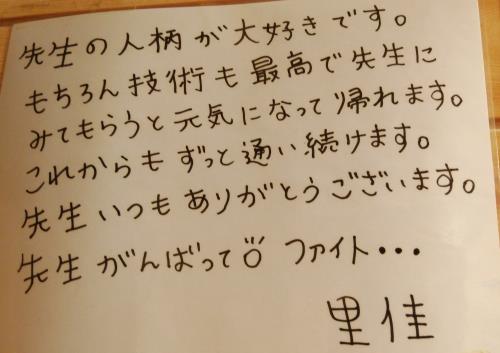 先生の人柄が大好きです。
もちろん技術も最高で先生に
みてもらうと元気になって帰れます。
これからもずっと通い続けます。
先生いつもありがとうございます。
先生がんばって ファイト・・・
里佳